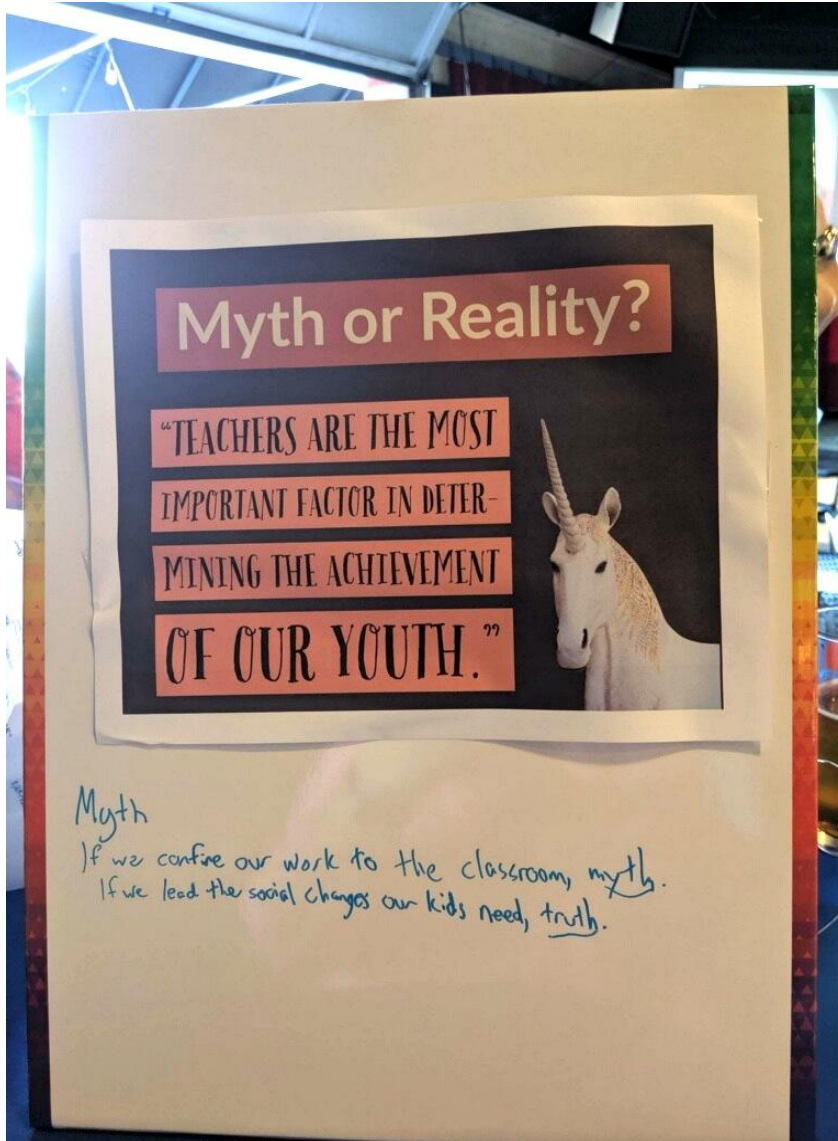 Myth or Reality?
“TEACHERS ARE THE MOST
IMPORTANT FACTOR IN DETER-
MINING THE ACHIEVEMENT
OF OUR YOUTH.”
Myth
If we confine our work to the classroom, myth.
If we lead the social changes our kids need, truth.